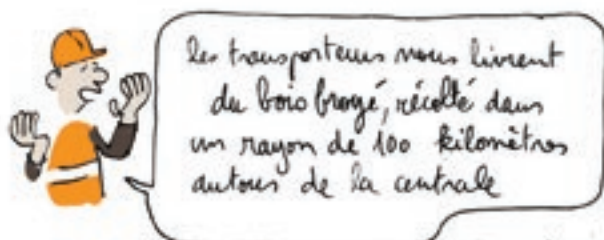 les transporteurs nous livrent
du bois broyé, récolté dans
un rayon de 100 kilomètres
autour de la centrale